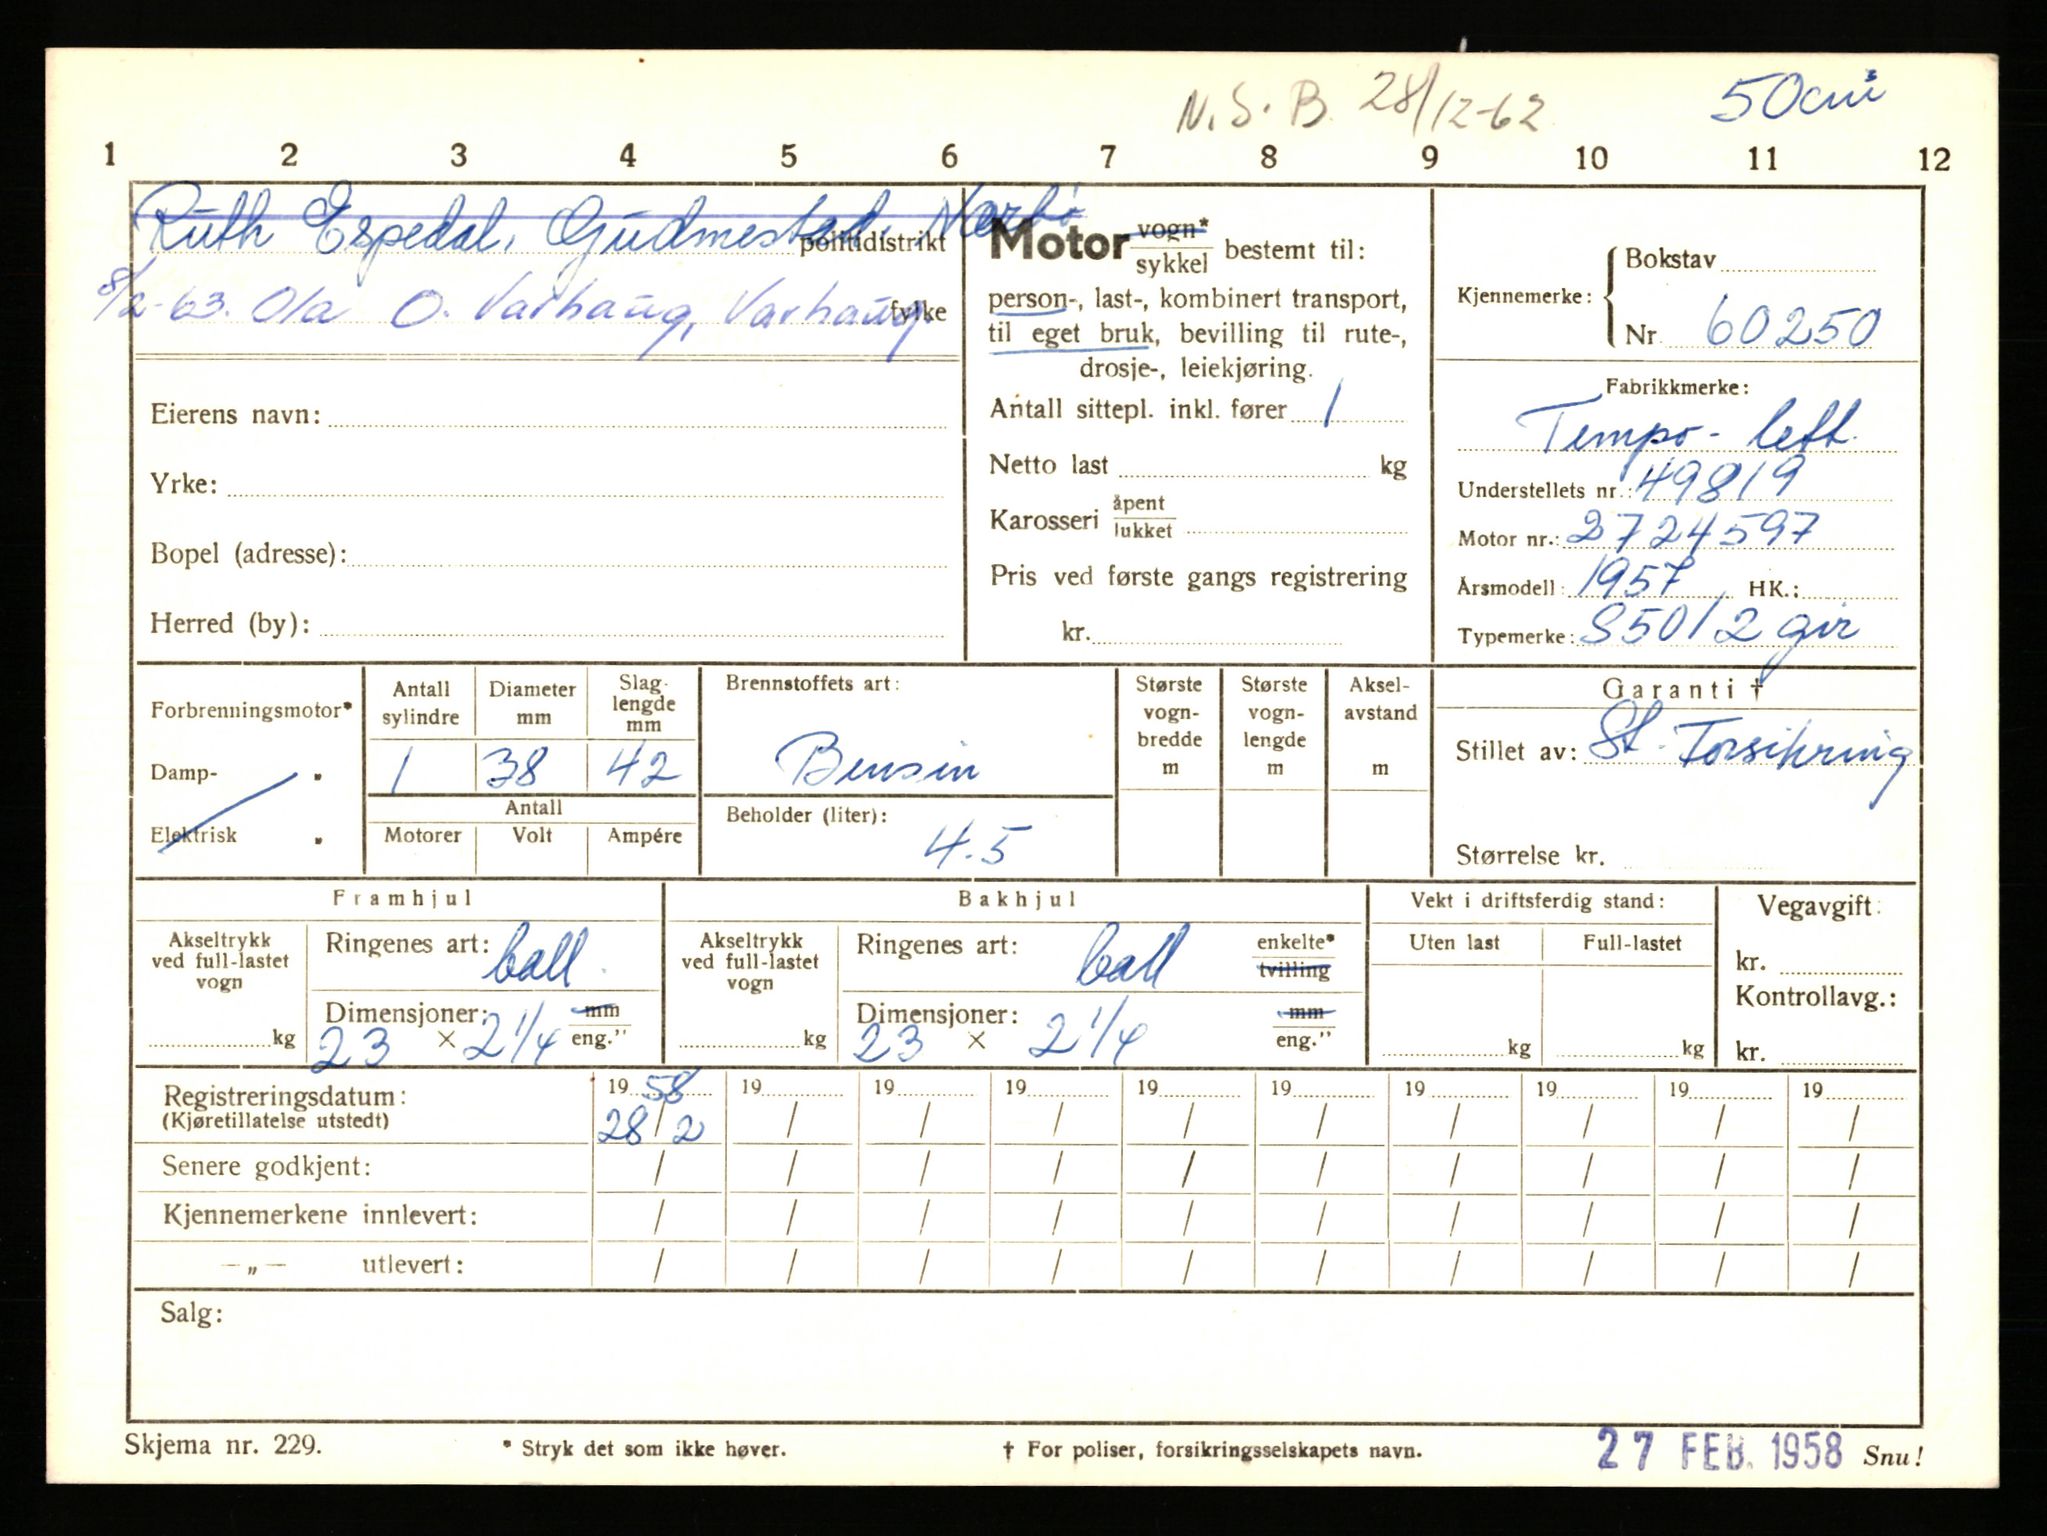 N.S.B. 28/12-62 50cm³
1 2 3 4 5 6 7 8 9 10 11 12
Ruth Espedal, Gudmestad, Nærbø
politidistrikt
8/2-63. Ola O. Varhaug, Varhaug.
fylke
Eierens navn:
Yrke:
Bopel (adresse):
Herred (by):
Motor vogn* / sykkel bestemt til:
person-, last-, kombinert transport,
til eget bruk, bevilling til rute-,
drosje-, leiekjøring.
Antall sittepl. inkl. fører 1
Netto last kg
Karosseri åpent / lukket
Pris ved første gangs registrering
kr.
Kjennemerke: Bokstav
Nr. 60250
Fabrikkmerke:
Tempo- lett.
Understellets nr.: 49819
Motor nr.: 2724597
Årsmodell: 1957 HK.:
Typemerke: S50/2 gir
Forbrenningsmotor*
Damp- "
Elektrisk "
Antall sylindre Diameter mm Slag-lengde mm
1 38 42
Antall
Motorer Volt Ampére
Brennstoffets art:
Bensin
Beholder (liter):
4.5
Største vogn-bredde m
Største vogn-lengde m
Aksel-avstand m
Garanti †
Stillet av: St. Forsikring
Størrelse kr.
Framhjul
Akseltrykk ved full-lastet vogn
kg
Ringenes art: ball.
Dimensjoner: mm / eng."
23 × 2 1/4
Bakhjul
Akseltrykk ved full-lastet vogn
kg
Ringenes art: ball enkelte* / tvilling
Dimensjoner: mm / eng."
23 × 2 1/4
Vekt i driftsferdig stand:
Uten last Full-lastet
kg kg
Vegavgift:
kr.
Kontrollavg.:
kr.
Registreringsdatum: 19 58 19 19 19 19 19 19 19 19 19
(Kjøretillatelse utstedt) 28/2 / / / / / / / / /
Senere godkjent: / / / / / / / / / /
Kjennemerkene innlevert: / / / / / / / / / /
—„— utlevert: / / / / / / / / / /
Salg:
Skjema nr. 229. * Stryk det som ikke høver. † For poliser, forsikringsselskapets navn. 27 FEB. 1958 Snu!